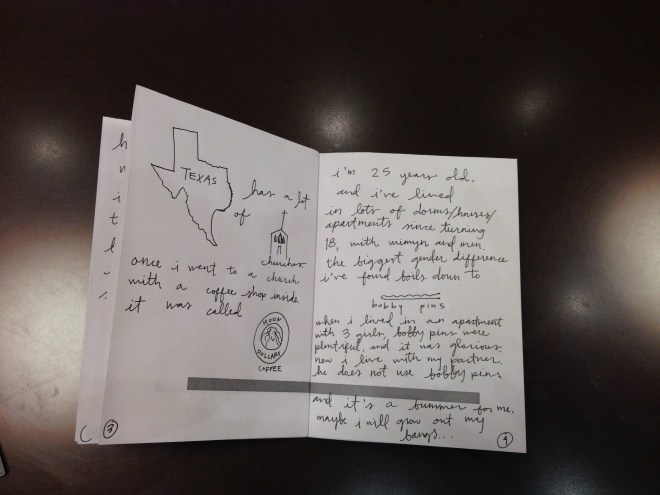 h
n
i
t
l
TEXAS
has a lot
of
churches.
once i went to a church
with a coffee shop inside
it was called
MOON
DOLLARS
COFFEE
3
i'm 25 years old.
and i've lived
in lots of dorms/houses/
apartments since turning
18, with wimyn and men.
the biggest gender difference
i've found boils down to
bobby pins
when i lived in an apartment
with 3 girls, bobby pins were
plentiful, and it was glorious.
now i live with my partner.
he does not use bobby pins
and it's a bummer for me.
maybe i will grow out my
bangs...
4